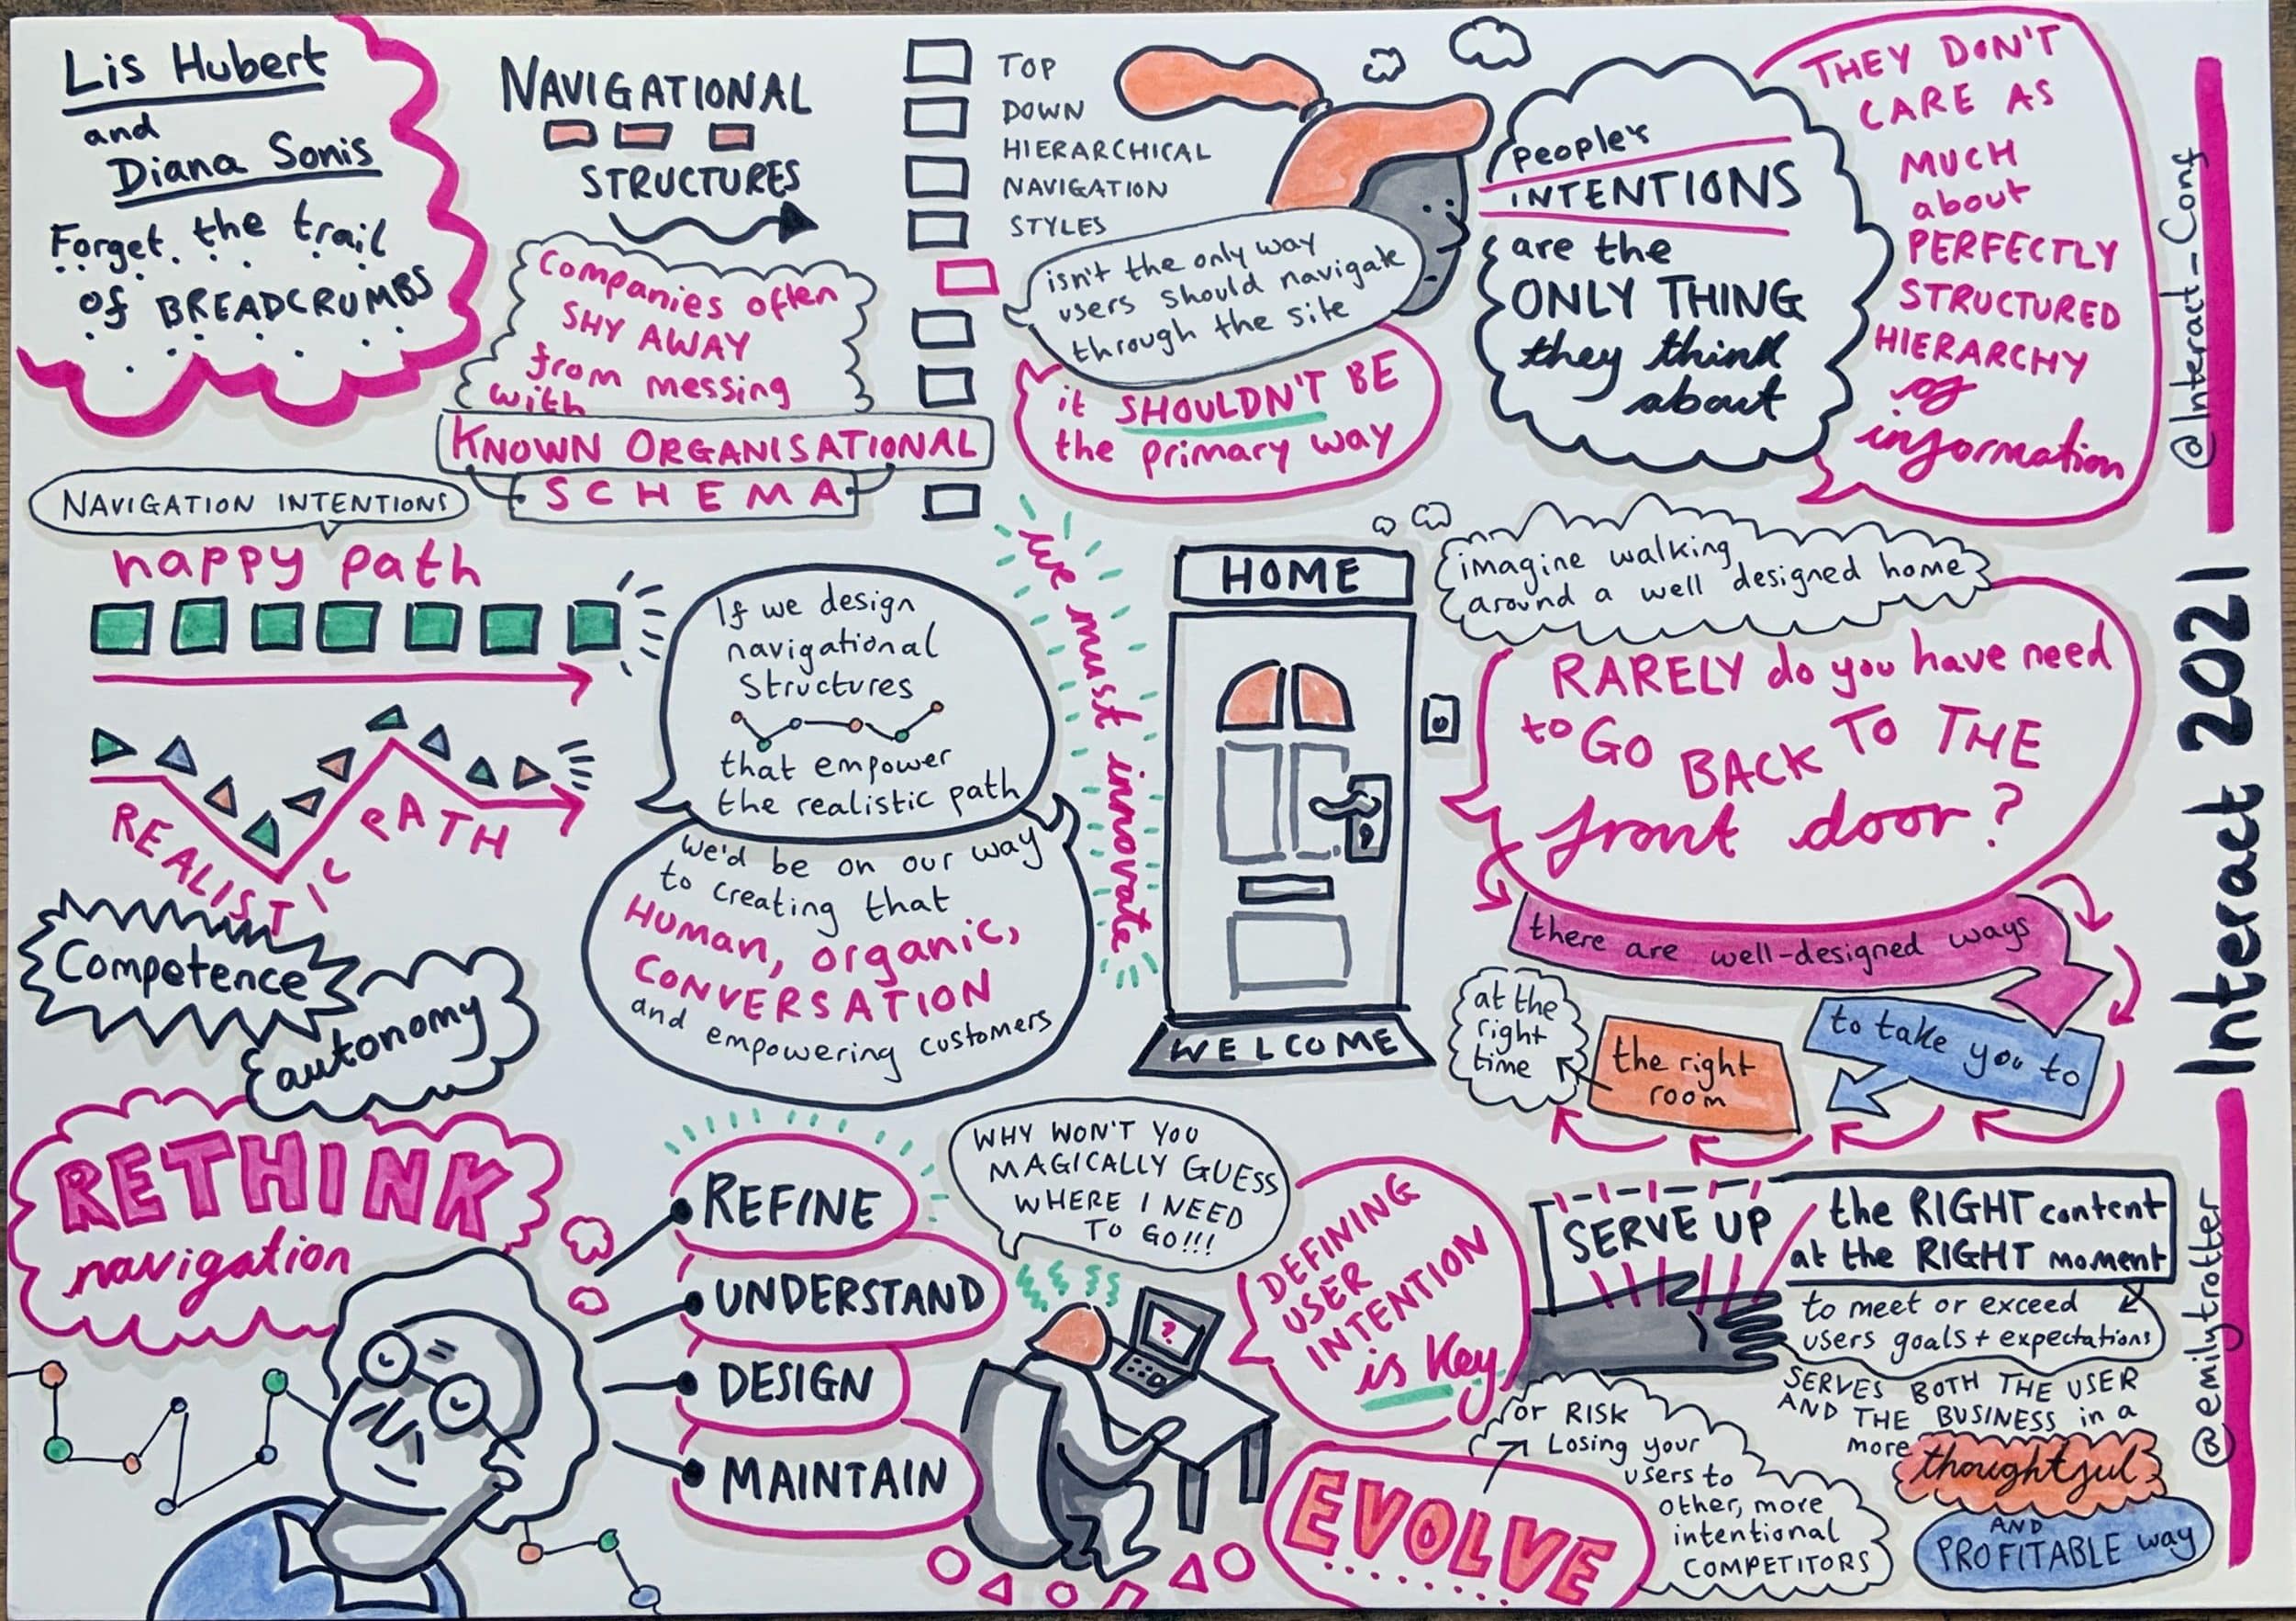 Lis Hubert
and
Diana Sonis
Forget the trail
of BREADCRUMBS
NAVIGATIONAL
STRUCTURES
Companies often
SHY AWAY
from messing
with
KNOWN ORGANISATIONAL
SCHEMA
TOP
DOWN
HIERARCHICAL
NAVIGATION
STYLES
isn't the only way
users should navigate
through the site
it SHOULDN'T BE
the primary way
people's
INTENTIONS
are the
ONLY THING
they think
about
THEY DON'T
CARE AS
MUCH
about
PERFECTLY
STRUCTURED
HIERARCHY
of
information
NAVIGATION INTENTIONS
happy path
REALISTIC PATH
Competence
autonomy
If we design
navigational
structures
that empower
the realistic path
we'd be on our way
to creating that
HUMAN, organic,
CONVERSATION
and empowering customers
we must innovate
HOME
WELCOME
imagine walking
around a well designed home
RARELY do you have need
to GO BACK TO THE
front door?
there are well-designed ways
to take you to
the right
room
at the
right
time
RETHINK
navigation
REFINE
UNDERSTAND
DESIGN
MAINTAIN
WHY WON'T YOU
MAGICALLY GUESS
WHERE I NEED
TO GO!!!
?
DEFINING
USER
INTENTION
is key
SERVE UP
the RIGHT content
at the RIGHT moment
to meet or exceed
users goals + expectations
SERVES BOTH THE USER
AND THE BUSINESS in a
more
thoughtful
AND
PROFITABLE way
EVOLVE
or RISK
Losing your
users to
other, more
intentional
COMPETITORS
@Interact-Conf
Interact 2021
@emilytrotter